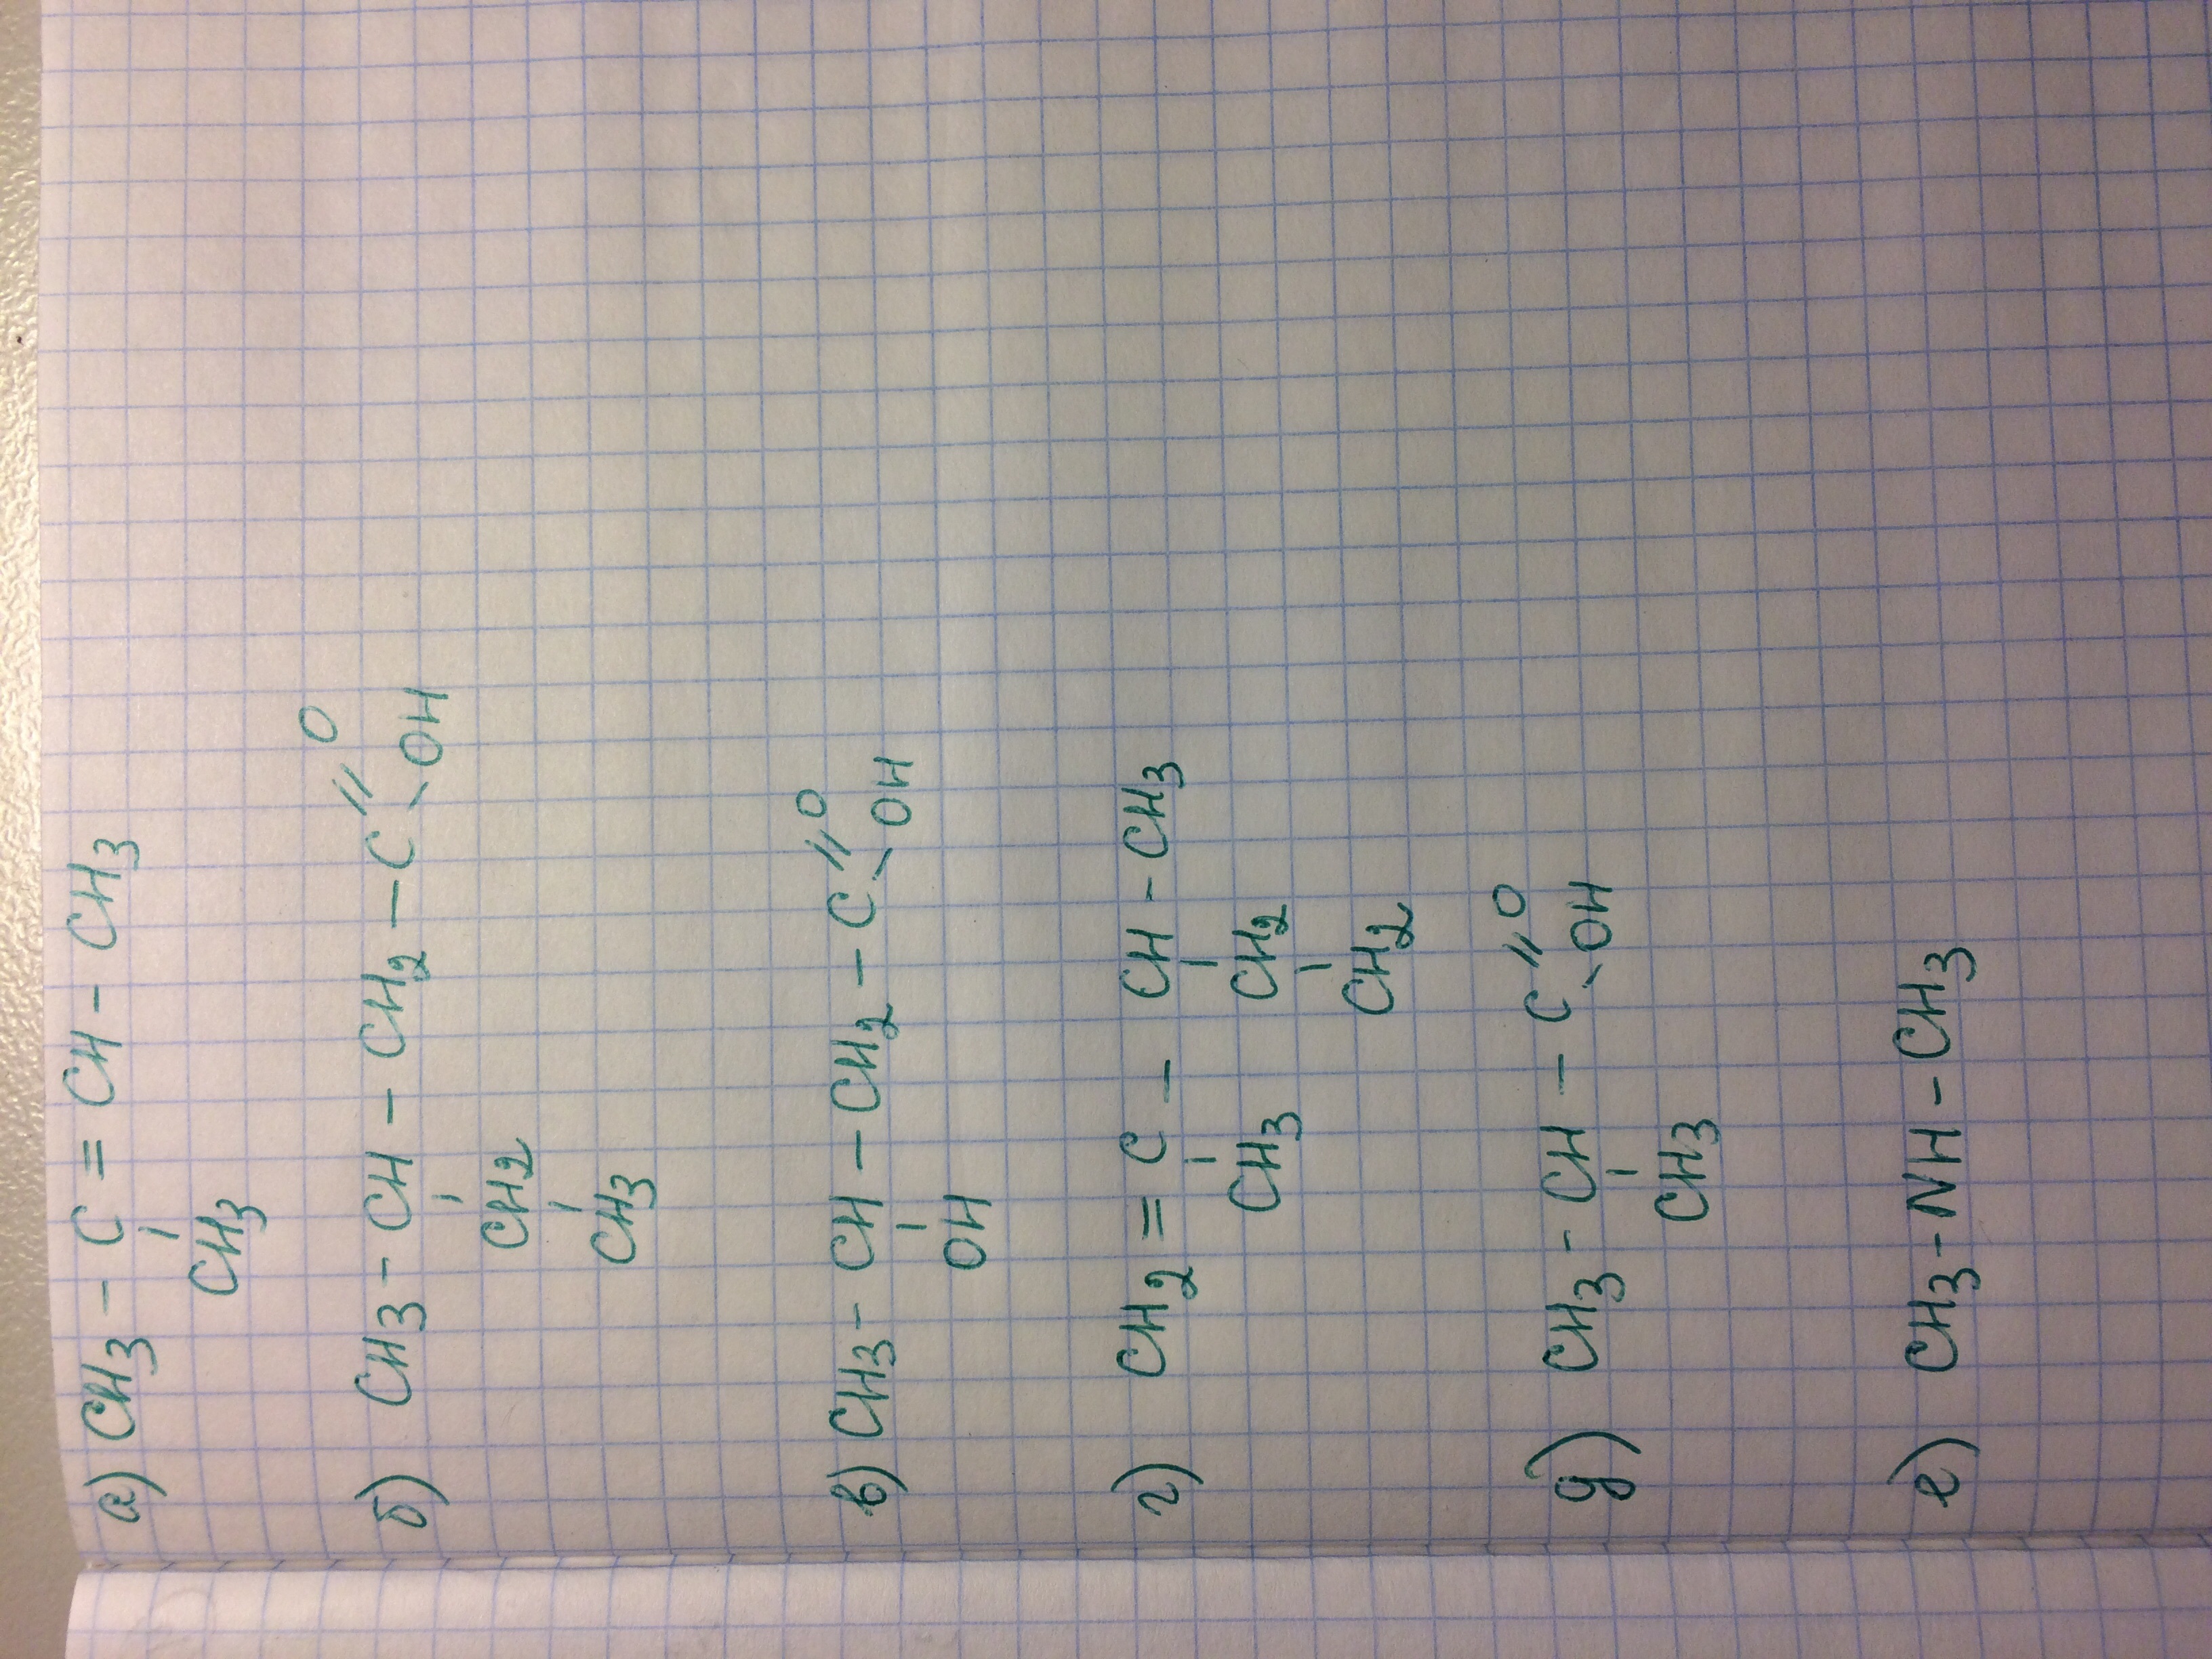 а) CH3 - C = CH - CH3
CH3
б) CH3 - CH - CH2 - C = O
OH
CH2
CH3
в) CH3 - CH - CH2 - C = O
OH
OH
г) CH2 = C - CH - CH3
CH3 CH2
CH2
д) CH3 - CH - C = O
OH
CH3
е) CH3 - NH - CH3